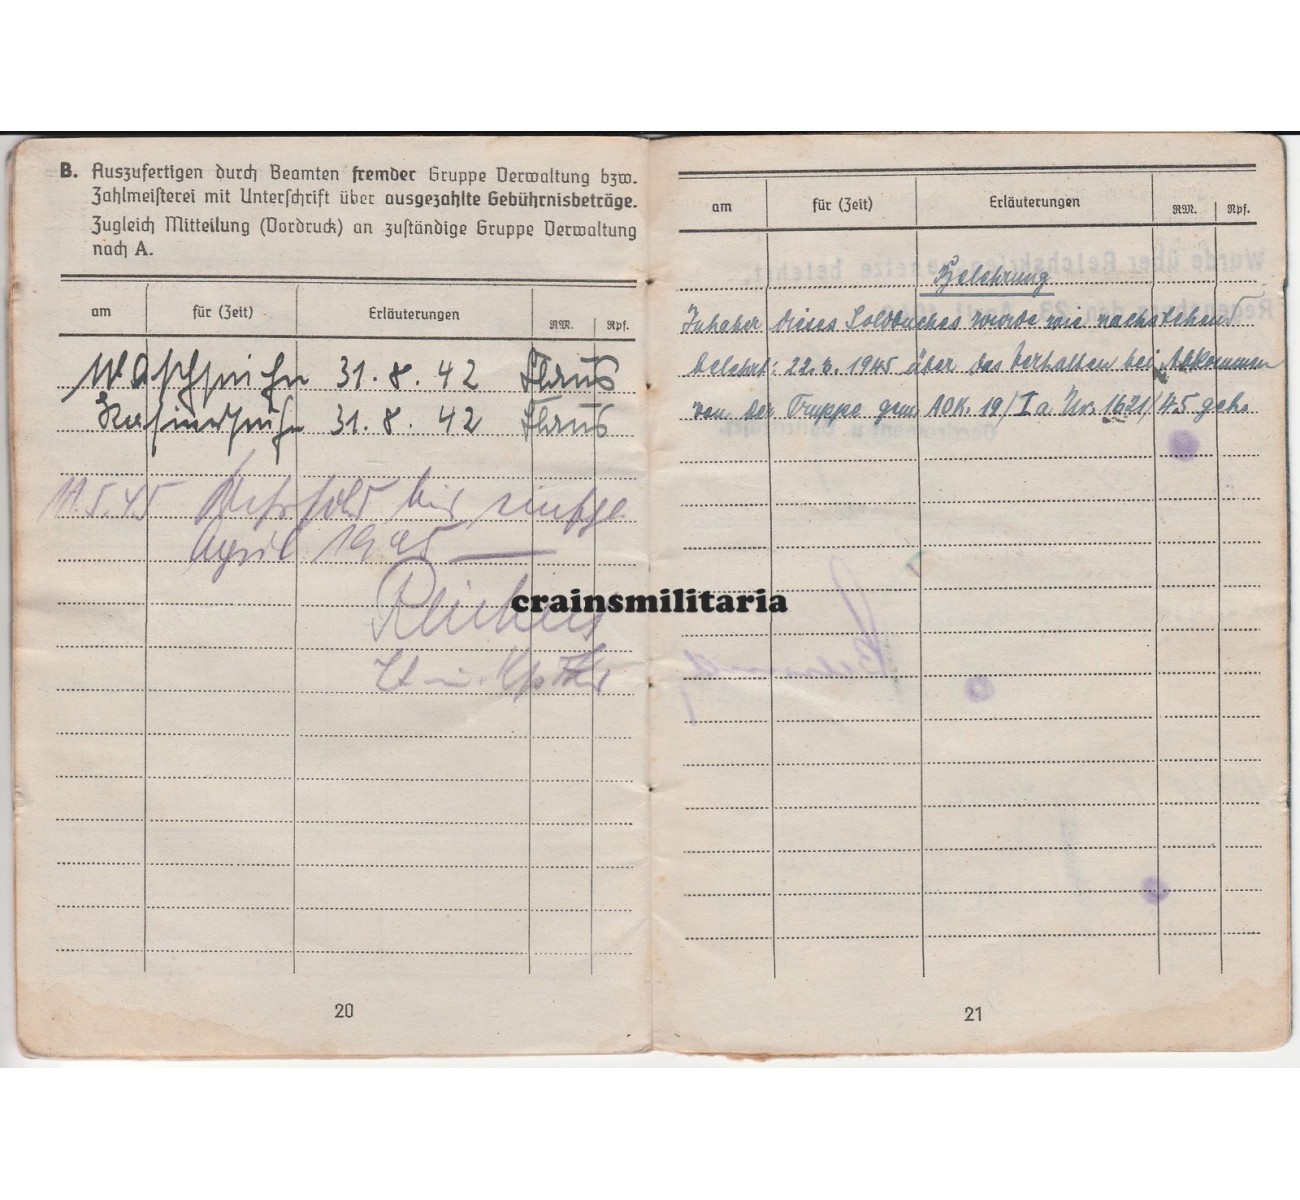 B. Auszufertigen durch Beamten fremder Gruppe Verwaltung bzw.
Zahlmeisterei mit Unterschrift über ausgezahlte Gebührnisbeträge.
Zugleich Mitteilung (Vordruck) an zuständige Gruppe Verwaltung
nach A.
am für (Zeit) Erläuterungen RM. Rpf.
31. 8. 42
31. 8. 42
11.5.45 Wehrsold bis
April 1945
20
am für (Zeit) Erläuterungen RM. Rpf.
Belehrung
Inhaber dieses Soldbuches wurde wie nachstehend
belehrt: 22. 4. 1945 über das Verhalten bei Abkommen
von der Truppe gem. AOK. 19/Ia Nr. 1621/45 geh.
21
crainsmilitaria